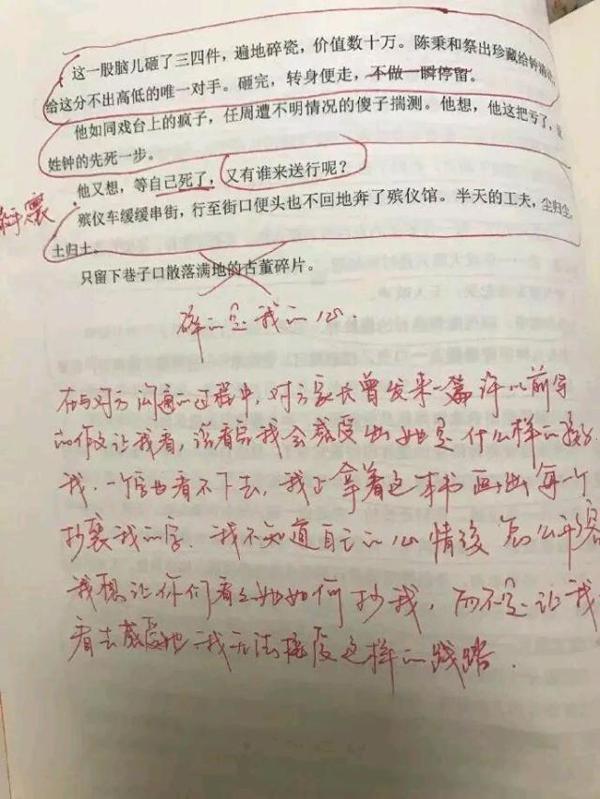 这一股脑儿砸了三四件，遍地碎瓷，价值数十万。陈秉和祭出珍藏给钟
给这分不出高低的唯一对手。砸完，转身便走，不做一瞬停留。
他如同戏台上的疯子，任周遭不明情况的傻子揣测。他想，他这把亏了，
姓钟的先死一步。
他又想，等自己死了，又有谁来送行呢？
抄袭
殡仪车缓缓串街，行至街口便头也不回地奔了殡仪馆。半天的工夫，尘归尘，
土归土。
只留下巷子口散落满地的古董碎片。
碎的是我的心.
在与对方沟通的过程中，对方家长曾发来一篇许以前写
的作文让我看，说看完我会感受出她是什么样的孩子.
我.一个字也看不下去，我正拿着这本书画出每一个
抄袭我的字.我不知道自己的心情该怎么平
我想让你们看看她如何抄我，而不是让我
看去感受她.我无法接受这样的践踏.